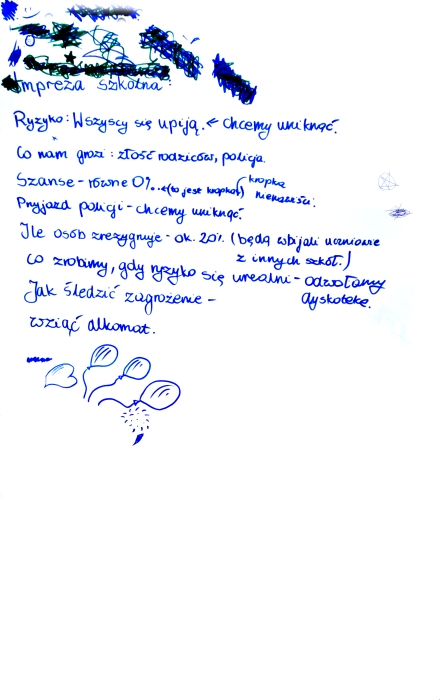 Impreza szkolna:
Ryzyko: Wszyscy się upiją. ← chcemy uniknąć.
Co nam grozi: złość rodziców, policja.
Szanse - równe 0%. ←(to jest kropka) (kropka nienawiści.
Przyjazd policji - chcemy uniknąć.
Ile osób zrezygnuje - ok. 20%. (będą wbijali uczniowie
z innych szkół.)
Co zrobimy, gdy ryzyko się urealni - odwołamy
dyskotekę.
Jak śledzić zagrożenie -
wziąć alkomat.